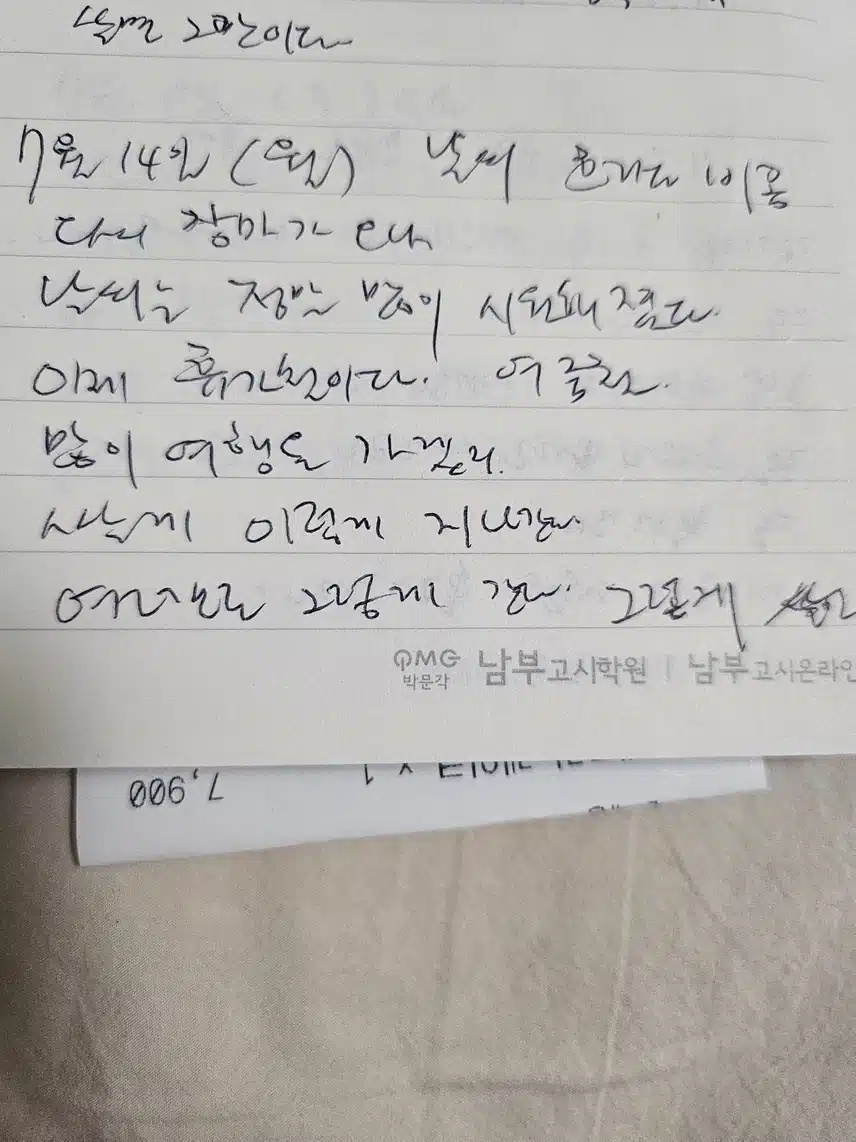 살면 그만이다
7월 14일 (월) 날씨 흐리고 비옴
다시 장마가 온다
날씨는 정말 많이 시원해졌다.
이제 휴가철이다. 여름철.
많이 여행을 가겠지.
사는게 이렇게 지나간다.
그렇게 간다. 그렇게
PMG 박문각 남부고시학원 | 남부고시온라인
7,900
x 1